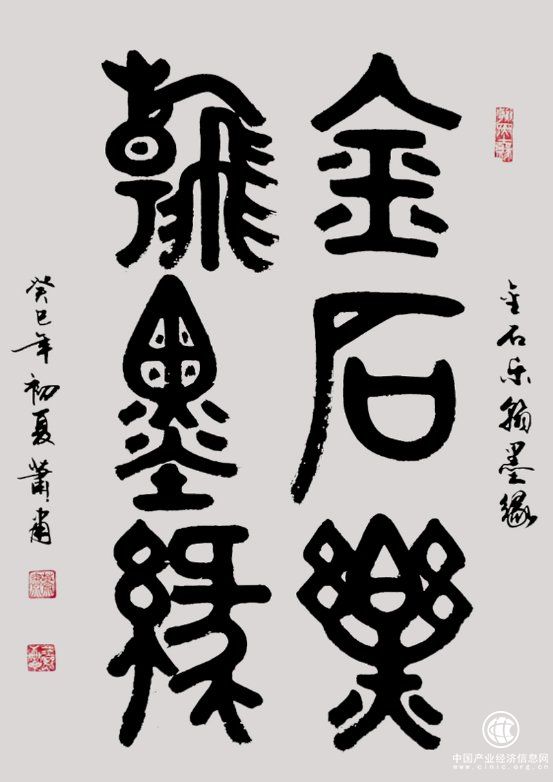 金石乐翰墨缘
金石樂
翰墨緣
癸巳年初夏蕭
中国产业经济信息网
www.cinic.org.cn